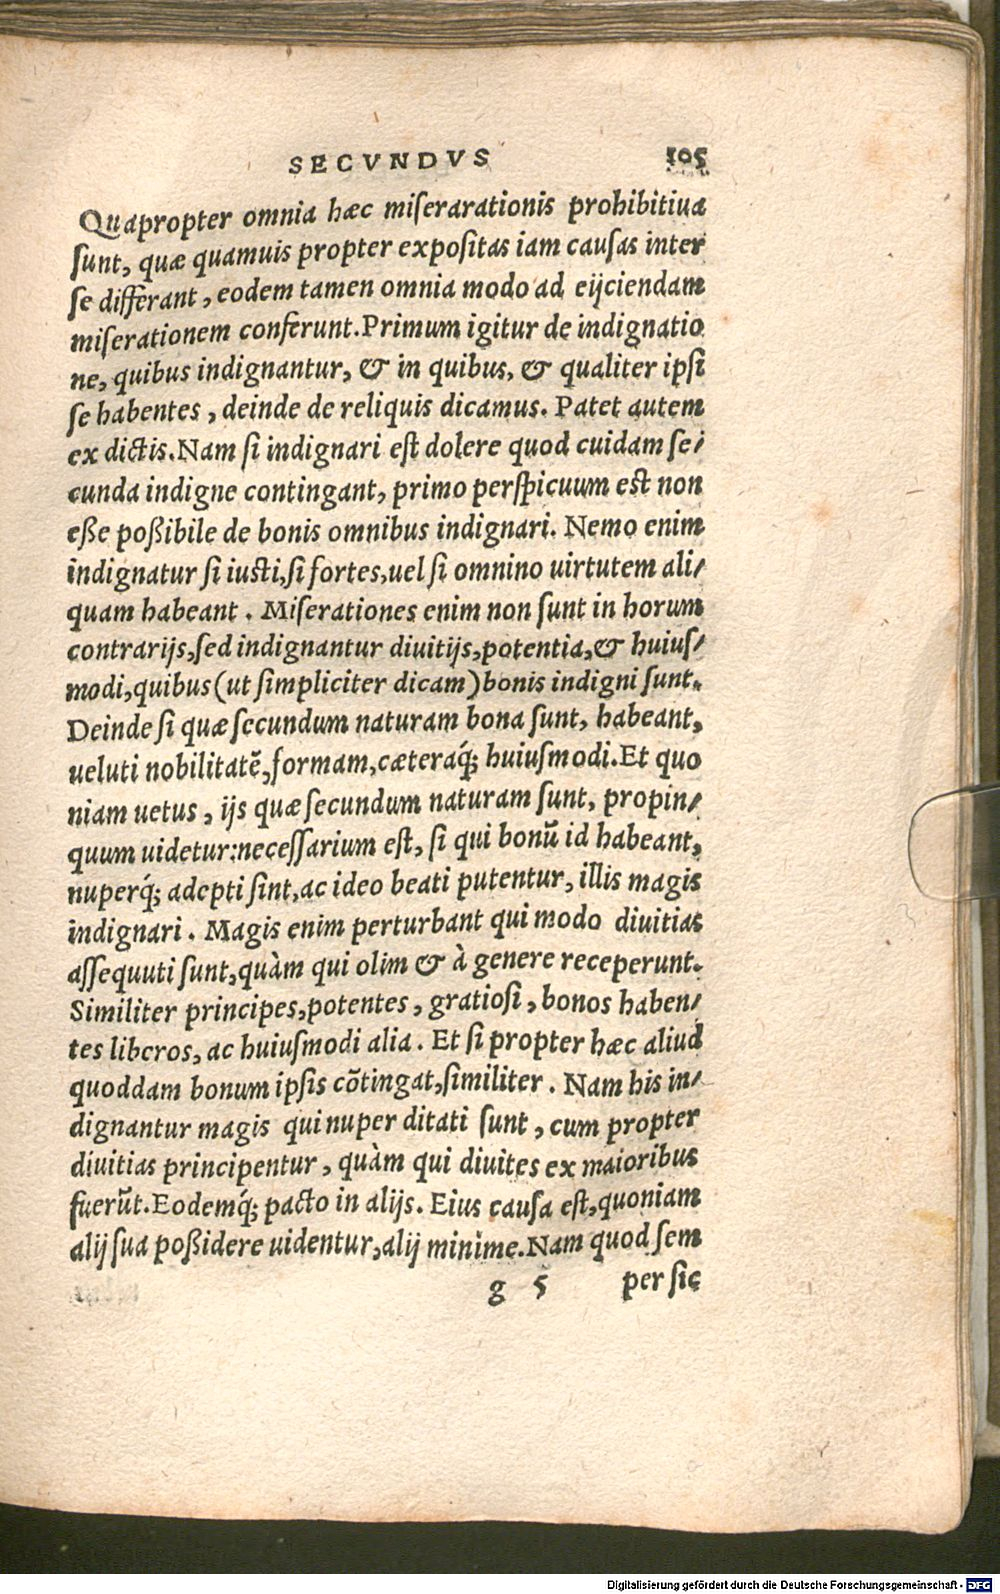 SECVNDVS 105
Quapropter omnia hæc miserarationis prohibitiua
sunt, quæ quamuis propter expositas iam causas inter
se differant, eodem tamen omnia modo ad eijciendam
miserationem conferunt. Primum igitur de indignatio
ne, quibus indignantur, & in quibus, & qualiter ipsi
se habentes, deinde de reliquis dicamus. Patet autem
ex dictis. Nam si indignari est dolere quod cuidam se/
cunda indigne contingant, primo perspicuum est non
eße poßibile de bonis omnibus indignari. Nemo enim
indignatur si iusti, si fortes, uel si omnino uirtutem ali/
quam habeant. Miserationes enim non sunt in horum
contrarijs, sed indignantur diuitijs, potentia, & huius/
modi, quibus (ut simpliciter dicam) bonis indigni sunt.
Deinde si quæ secundum naturam bona sunt, habeant,
ueluti nobilitatē, formam, cæteraq́; huiusmodi. Et quo
niam uetus, ijs quæ secundum naturam sunt, propin/
quum uidetur: necessarium est, si qui bonū id habeant,
nuperq́; adepti sint, ac ideo beati putentur, illis magis
indignari. Magis enim perturbant qui modo diuitias
assequuti sunt, quàm qui olim & à genere receperunt.
Similiter principes, potentes, gratiosi, bonos haben/
tes liberos, ac huiusmodi alia. Et si propter hæc aliud
quoddam bonum ipsis cōtingat, similiter. Nam his in/
dignantur magis qui nuper ditati sunt, cum propter
diuitias principentur, quàm qui diuites ex maioribus
fuerūt. Eodemq́; pacto in alijs. Eius causa est, quoniam
alij sua poßidere uidentur, alij minime. Nam quod sem
g 5 per sic
Digitalisierung gefördert durch die Deutsche Forschungsgemeinschaft - DFG